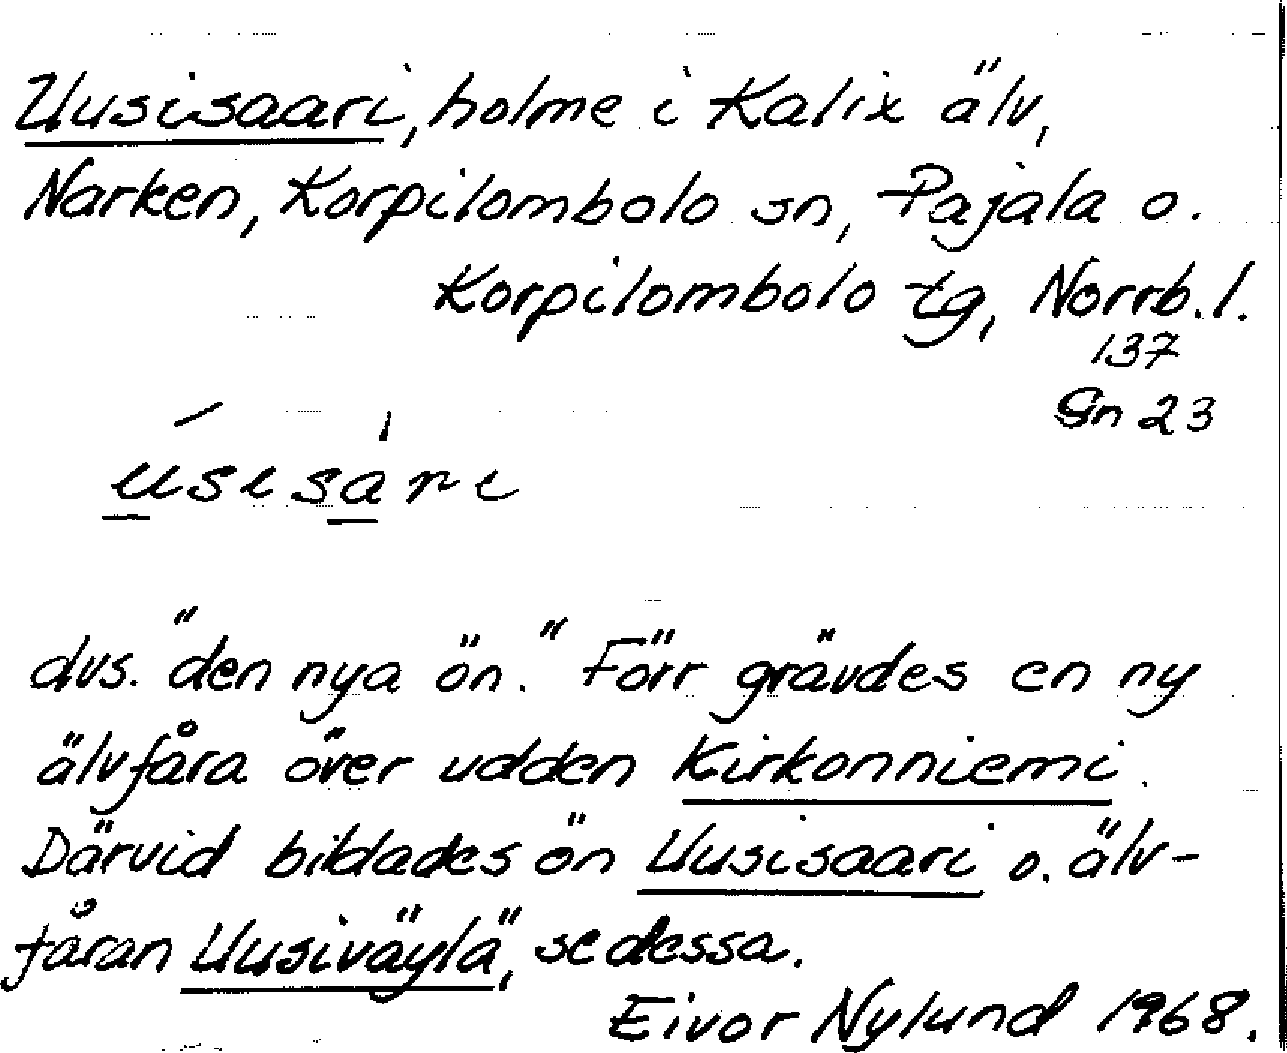 Uusisaari, holme i Kalix älv,
Narken, Korpilombolo sn, Pajala o.
Korpilombolo tg, Norrb. l.
137
Gn 23
úsisári
dvs. "den nya ön." Förr grävdes en ny
älvfåra över udden Kirkonniemi.
Därvid bildades ön Uusisaari o. älv-
fåran Uusiväylä, se dessa.
Eivor Nylund 1968.